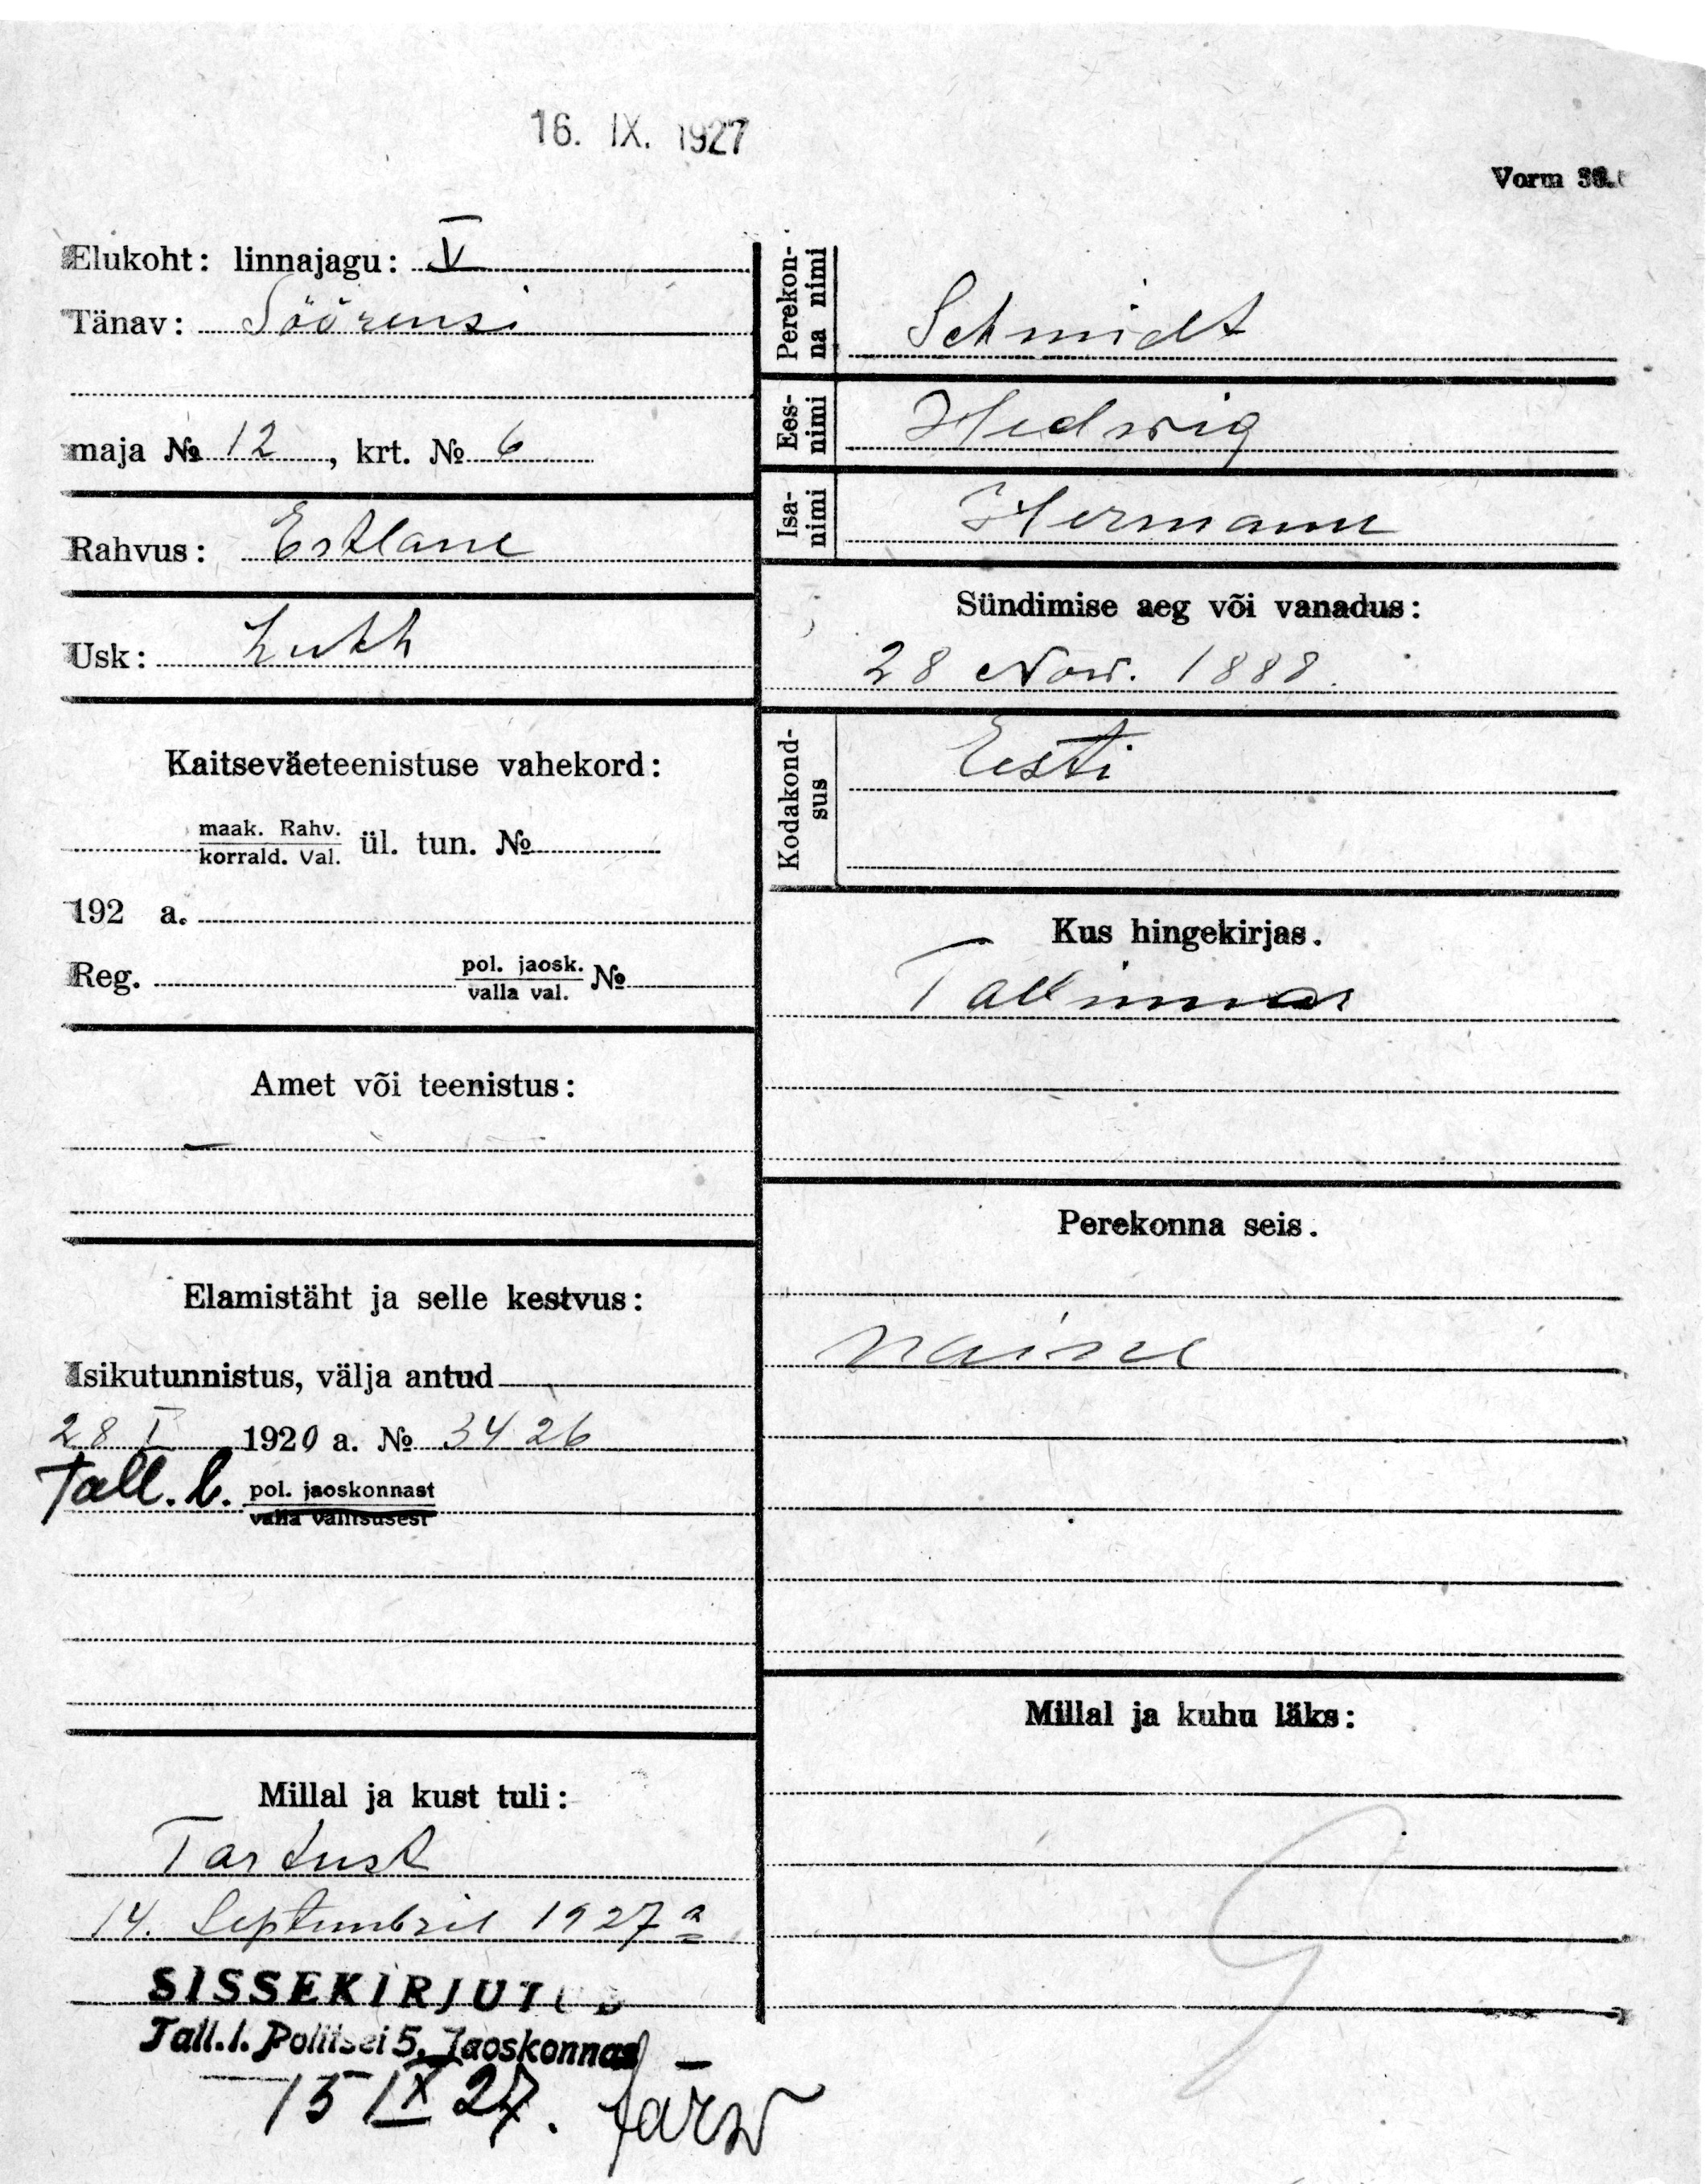 16. IX. 1927
Vorm
Elukoht: linnajagu: V
Tänav: Söörensi
maja № 12, krt. № 6
Rahvus: Estlane
Usk: Luth
Kaitseväeteenistuse vahekord:
maak. Rahv.
korrald. Val. ül. tun. №
192 a.
Reg. pol. jaosk.
valla val. №
Amet või teenistus:
—
Elamistäht ja selle kestvus:
Isikutunnistus, välja antud
28 I 1920 a. № 3426
Tall. l. pol. jaoskonnast
valla valitsusest
Millal ja kust tuli:
Tartust
14. Septembril 1927 a
SISSEKIRJUTUD
Tall. l. Politsei 5. Jaoskonnas
15 IX 27. Järw
Perekon-
na nimi
Schmidt
Ees-
nimi
Hedwig
Isa-
nimi
Hermann
Sündimise aeg või vanadus:
28 Now. 1888.
Kodakond-
sus
Eesti
Kus hingekirjas.
Tallinnas
Perekonna seis.
naine
Millal ja kuhu läks: